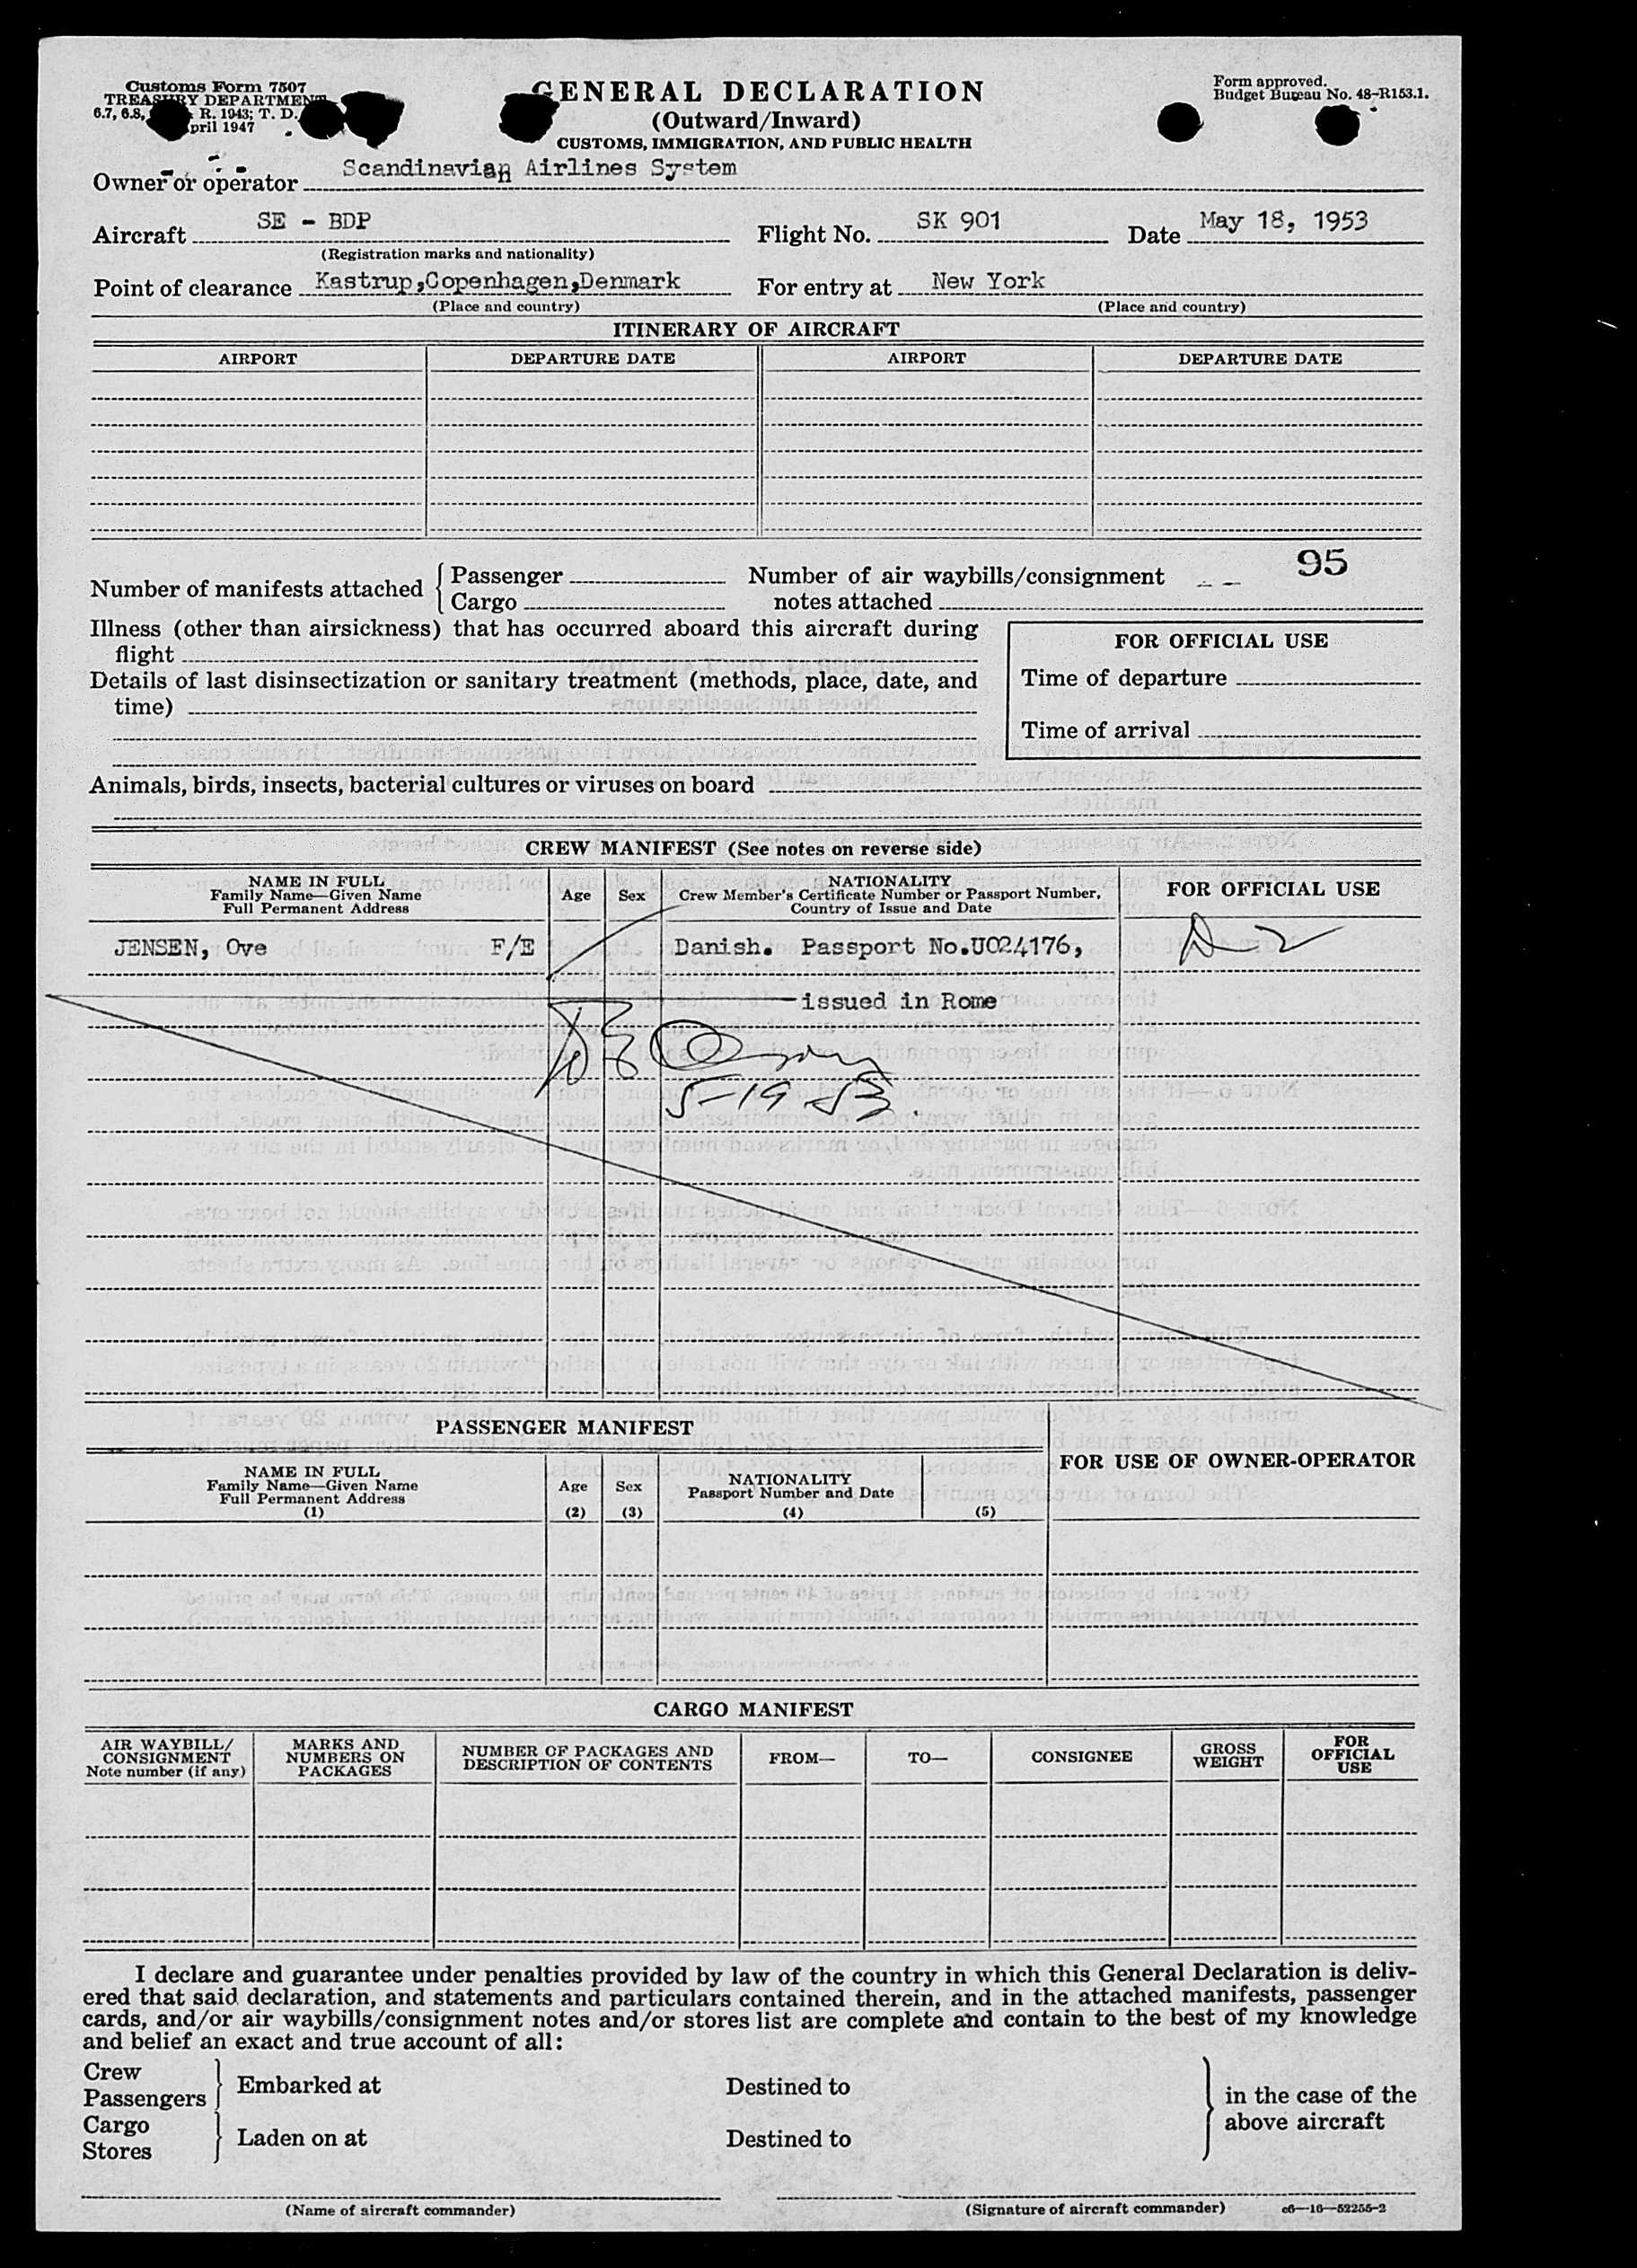 Customs Form 7507
TREASURY DEPARTMENT
6.7, 6.8, R. 1943; T. D.
April 1947
GENERAL DECLARATION
(Outward/Inward)
CUSTOMS, IMMIGRATION, AND PUBLIC HEALTH
Form approved.
Budget Bureau No. 48-R153.1.
Owner or operator Scandinavian Airlines System
Aircraft SE - BDP Flight No. SK 901 Date May 18, 1953
(Registration marks and nationality)
Point of clearance Kastrup,Copenhagen,Denmark For entry at New York
(Place and country) (Place and country)
ITINERARY OF AIRCRAFT
AIRPORT DEPARTURE DATE AIRPORT DEPARTURE DATE
95
Number of manifests attached { Passenger Number of air waybills/consignment
Cargo notes attached
Illness (other than airsickness) that has occurred aboard this aircraft during
flight
Details of last disinsectization or sanitary treatment (methods, place, date, and
time)
FOR OFFICIAL USE
Time of departure
Time of arrival
Animals, birds, insects, bacterial cultures or viruses on board
CREW MANIFEST (See notes on reverse side)
NAME IN FULL
Family Name—Given Name
Full Permanent Address
Age Sex
NATIONALITY
Crew Member's Certificate Number or Passport Number,
Country of Issue and Date
FOR OFFICIAL USE
JENSEN, Ove F/E Danish. Passport No.U024176,
issued in Rome
5-19-53.
PASSENGER MANIFEST
NAME IN FULL
Family Name—Given Name
Full Permanent Address
(1)
Age
(2)
Sex
(3)
NATIONALITY
Passport Number and Date
(4) (5)
FOR USE OF OWNER-OPERATOR
CARGO MANIFEST
AIR WAYBILL/
CONSIGNMENT
Note number (if any)
MARKS AND
NUMBERS ON
PACKAGES
NUMBER OF PACKAGES AND
DESCRIPTION OF CONTENTS
FROM— TO— CONSIGNEE
GROSS
WEIGHT
FOR
OFFICIAL
USE
I declare and guarantee under penalties provided by law of the country in which this General Declaration is deliv-
ered that said declaration, and statements and particulars contained therein, and in the attached manifests, passenger
cards, and/or air waybills/consignment notes and/or stores list are complete and contain to the best of my knowledge
and belief an exact and true account of all:
Crew
Passengers
Embarked at Destined to
Cargo
Stores
Laden on at Destined to
in the case of the
above aircraft
(Name of aircraft commander) (Signature of aircraft commander) c6—16—52255-2